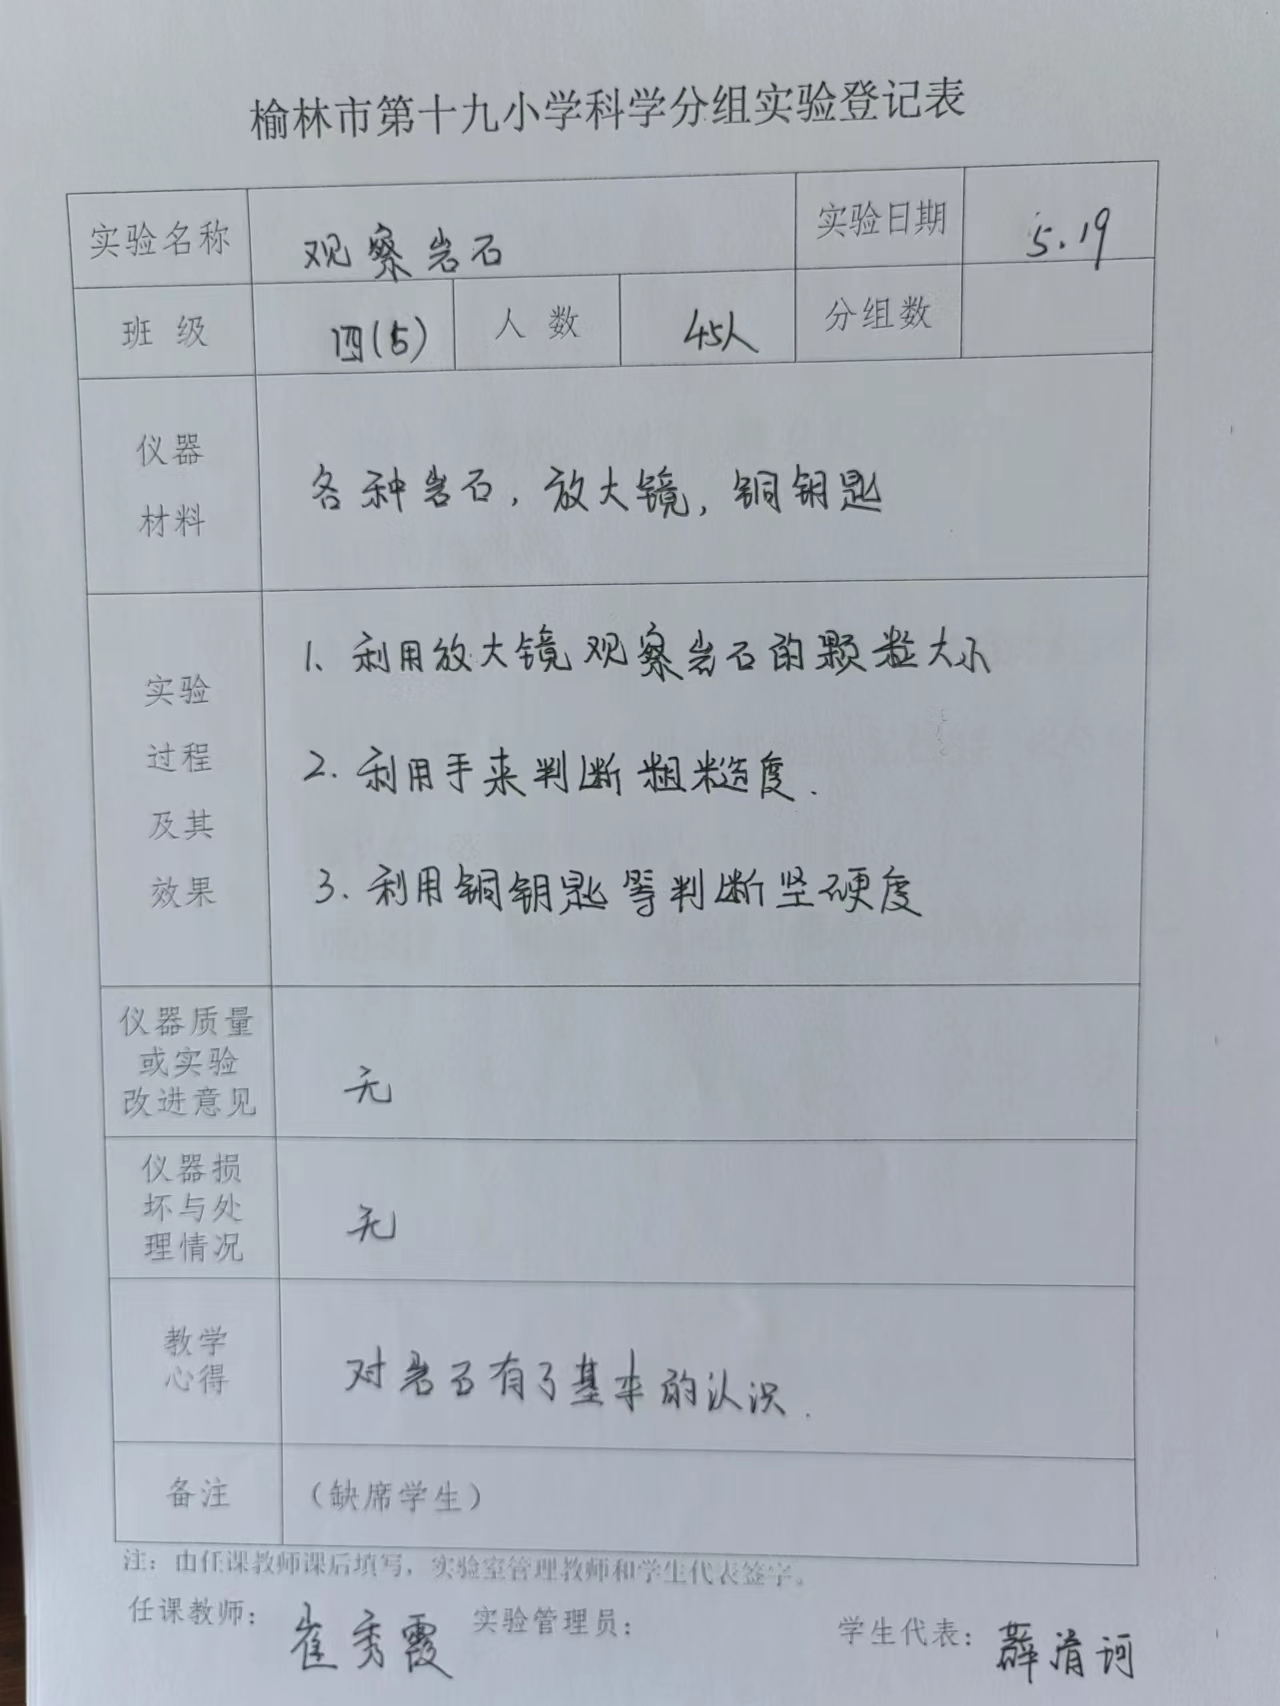 榆林市第十九小学科学分组实验登记表
实验名称 观察岩石 实验日期 5.19
班 级 四(5) 人 数 45人 分组数
仪器
材料
各种岩石，放大镜，铜钥匙
实验
过程
及其
效果
1、利用放大镜观察岩石的颗粒大小
2.利用手来判断粗糙度.
3.利用铜钥匙等判断坚硬度
仪器质量
或实验
改进意见
无
仪器损
坏与处
理情况
无
教学
心得
对岩石有了基本的认识.
备注 （缺席学生）
注：由任课教师课后填写，实验室管理教师和学生代表签字。
任课教师：崔秀霞 实验管理员： 学生代表：薛淯珂